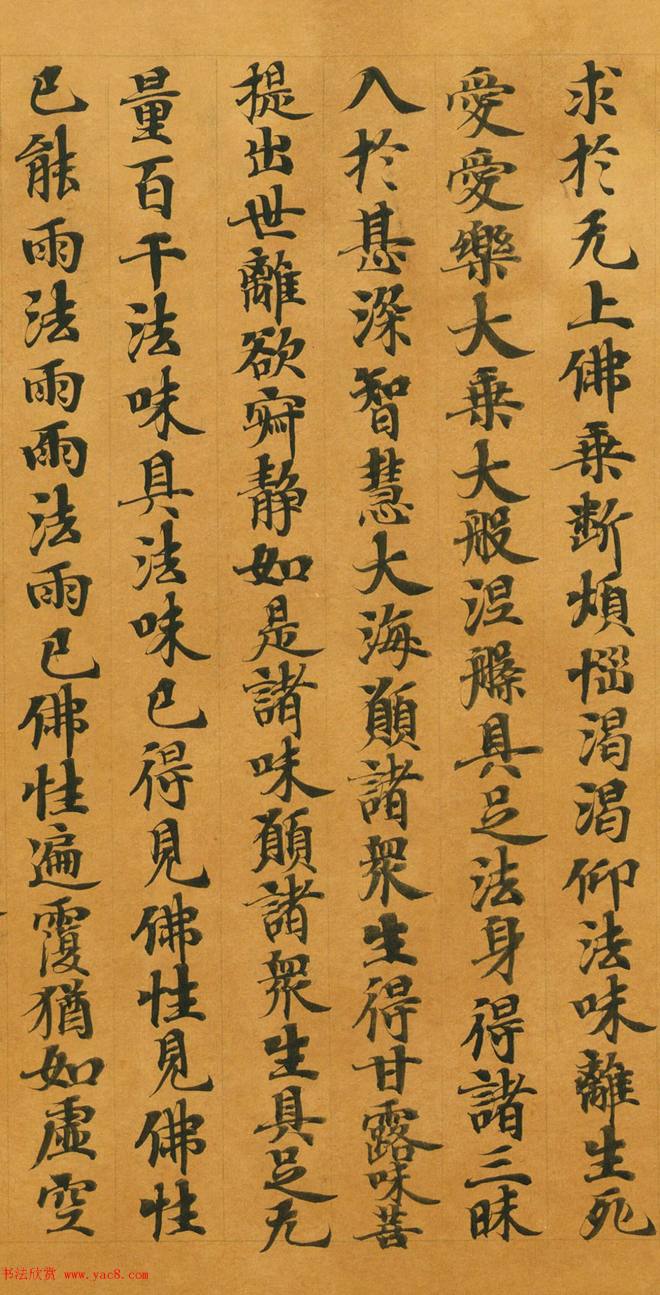 求於无上佛乘断煩惱渴渴仰法味離生死
愛愛樂大乘大般涅槃具足法身得諸三昧
入於甚深智慧大海願諸衆生得甘露味菩
提出世離欲寂静如是諸味願諸衆生具足无
量百千法味具法味已得見佛性見佛性
已能雨法雨雨法雨已佛性遍覆猶如虛空
书法欣赏 www.yac8.com